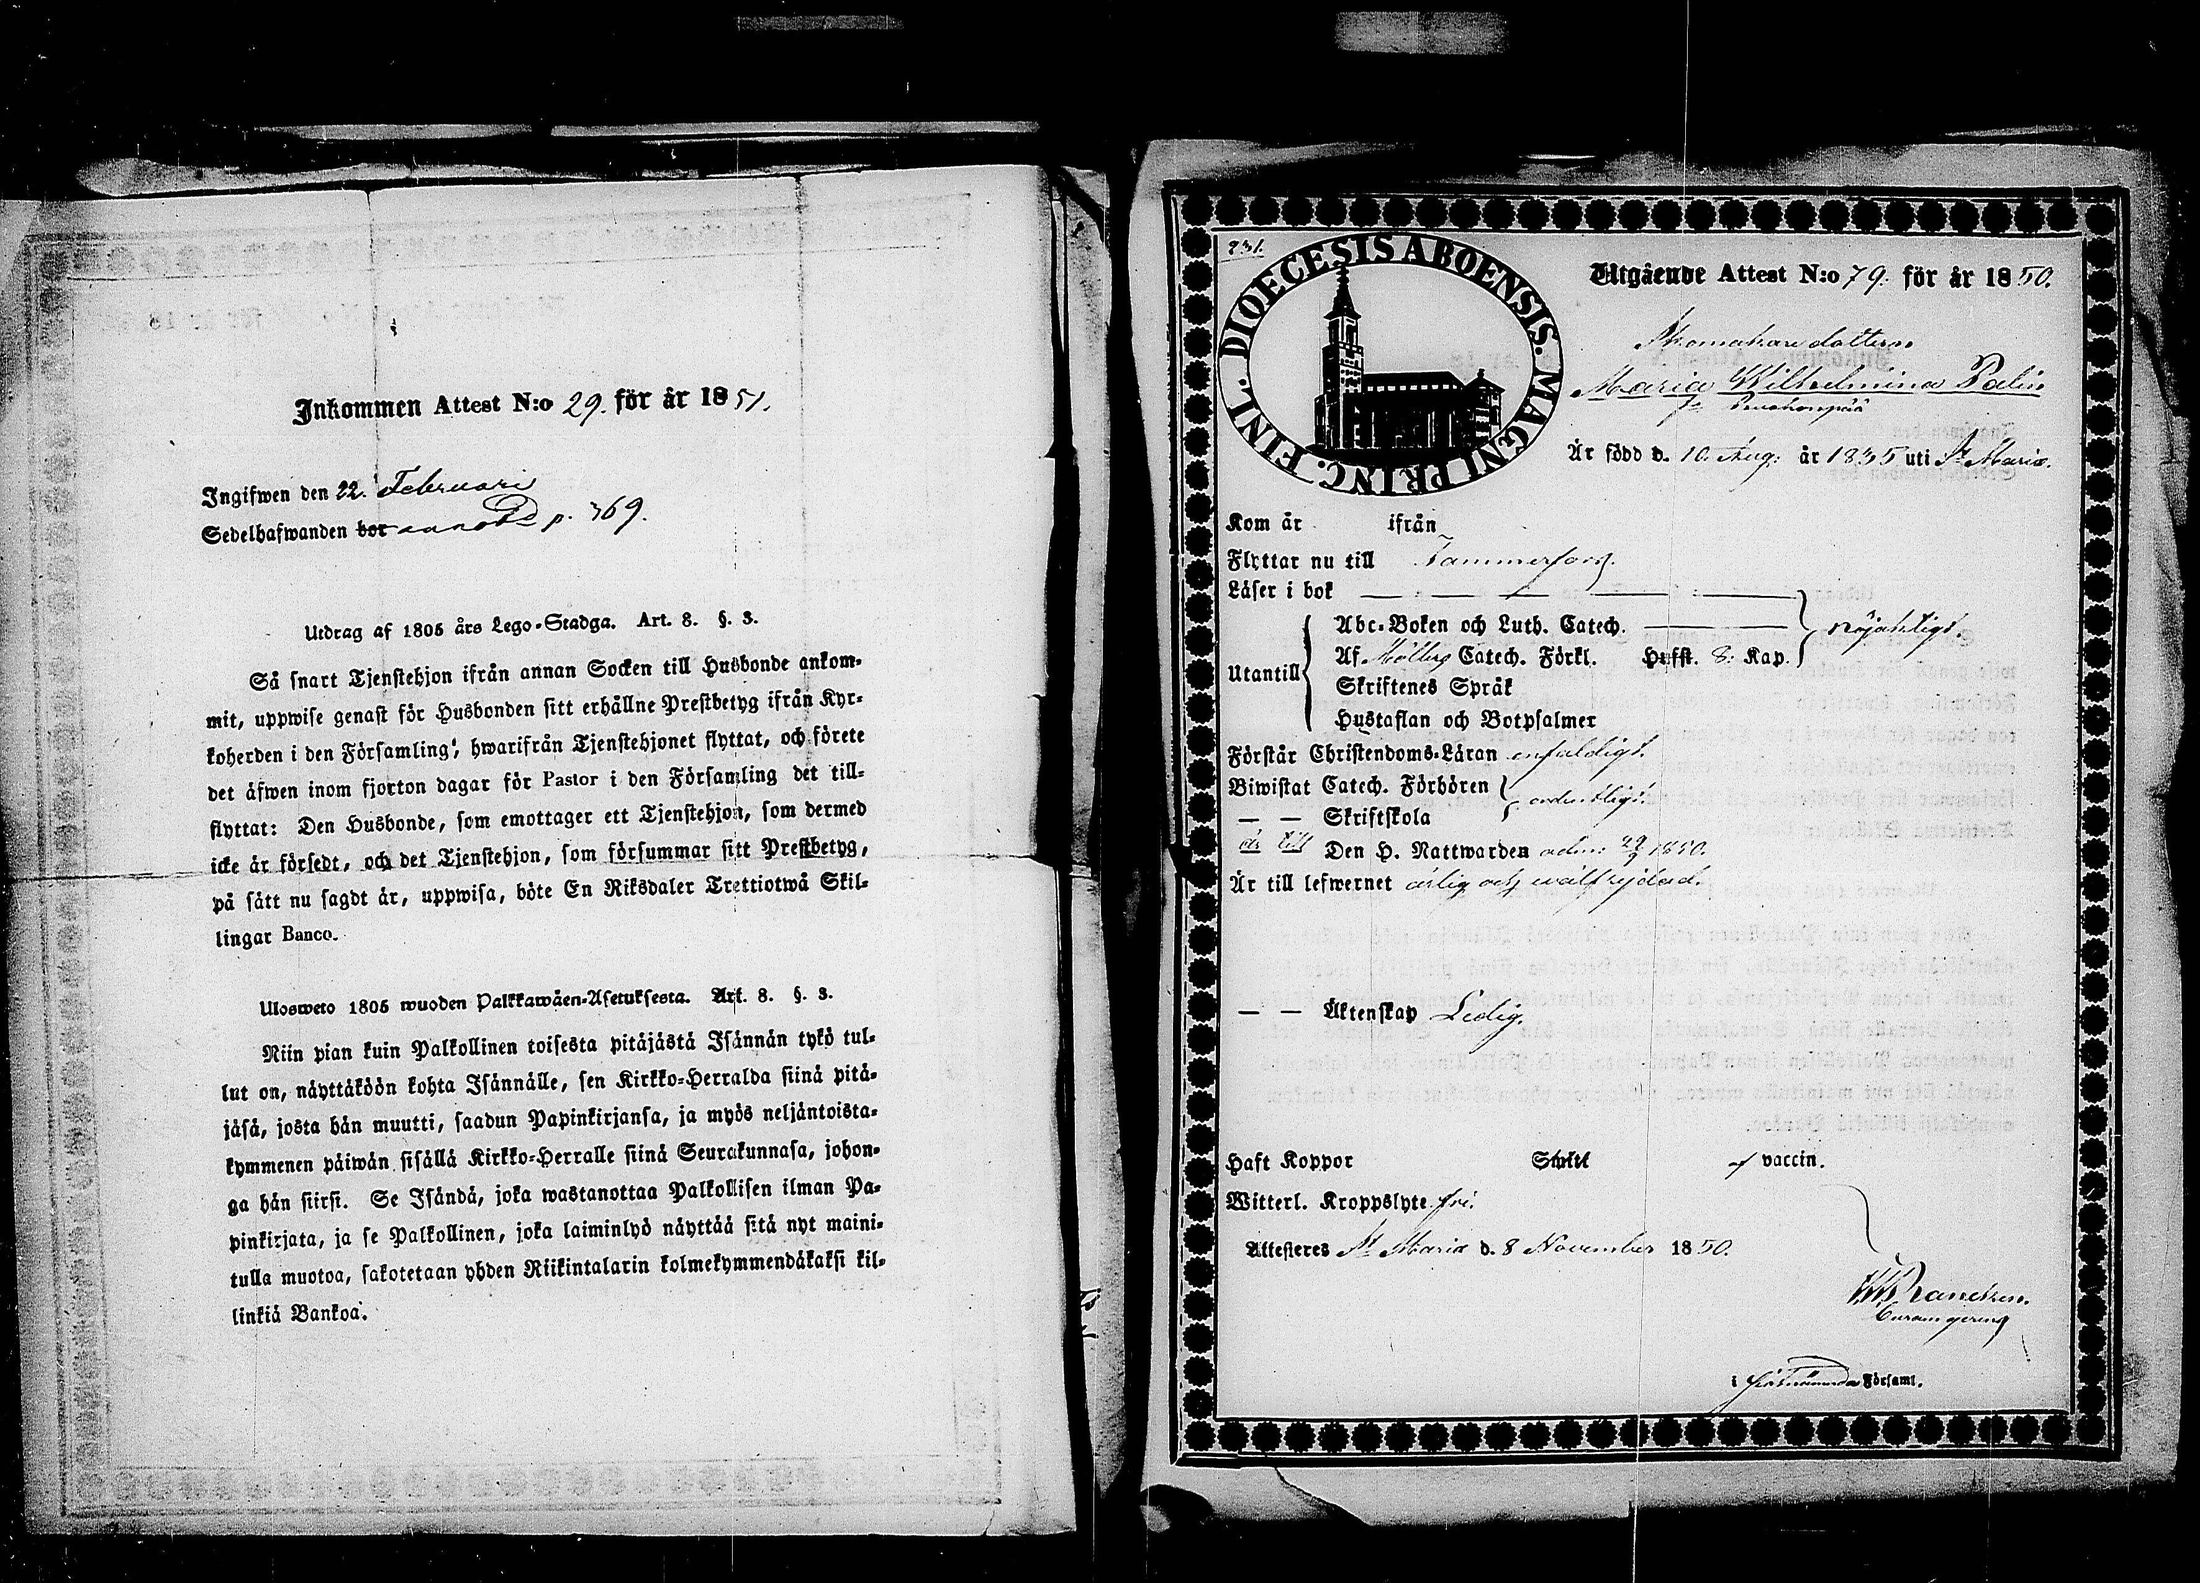 Inkommen Attest N:o 29. för år 1851.
Ingifwen den 22. Februari
Sedelhafwanden bor annot. p. 769.
Utdrag af 1805 års Lego-Stadga. Art. 8. §. 3.
Så snart Tjenstehjon ifrån annan Socken till Husbonde ankom-
mit, uppwise genast för Husbonden sitt erhållne Prestbetyg ifrån Kyr-
koherden i den Församling, hwarifrån Tjenstehjonet flyttat, och förete
det äfwen inom fjorton dagar för Pastor i den Församling det till-
flyttat: Den Husbonde, som emottager ett Tjenstehjon, som dermed
icke är försedt, och det Tjenstehjon, som försummar sitt Prestbetyg,
på sätt nu sagdt är, uppwisa, böte En Riksdaler Trettiotwå Skil-
lingar Banco.
Ulosweto 1805 wuoden Palkkawäen-Asetuksesta. Art. 8. §. 3.
Niin pian kuin Palkollinen toisesta pitäjästä Isännän tykö tul-
lut on, näyttäköön kohta Isännälle, sen Kirkko-Herralda siinä pitä-
jäsä, josta hän muutti, saadun Papinkirjansa, ja myös neljäntoista-
kymmenen päiwän sisällä Kirkko-Herralle siinä Seurakunnasa, johon-
ga hän siirsi. Se Isändä, joka wastanottaa Palkollisen ilman Pa-
pinkirjata, ja se Palkollinen, joka laiminlyö näyttää sitä nyt maini-
tulla muotoa, sakotetaan yhden Riikintalarin kolmekymmendäkaksi kil-
linkiä Bankoa.
831.
DIOECESIS ABOENSIS. MAGNI PRINC. FINL.
Utgående Attest N:o 79. för år 1850.
Skomakaredottren
Maria Wilhelmina Palin
Är född d. 10. Aug. år 1835 uti St Marie.
Kom år ifrån
Flyttar nu till Tammerfors.
Läser i bok
Utantill
Abc-Boken och Luth. Catech.
Af Möllers Catech. Förkl. Hufst. 8: Kap.
nöjaktligt.
Skriftenes Språk
Hustaflan och Botpsalmer
Förstår Christendoms-Läran enfaldigt.
Biwistat Catech. Förhören
ordentligt.
— — Skriftskola
är till Den H. Nattwarden adm: 1850.
Är till lefwernet ärlig och wälfrejdad.
— — Äktenskap Ledig.
Haft Koppor af vaccin.
Witterl. Kroppslyte fri.
Attesteres St Marie d. 8 November 1850.
i Församl.